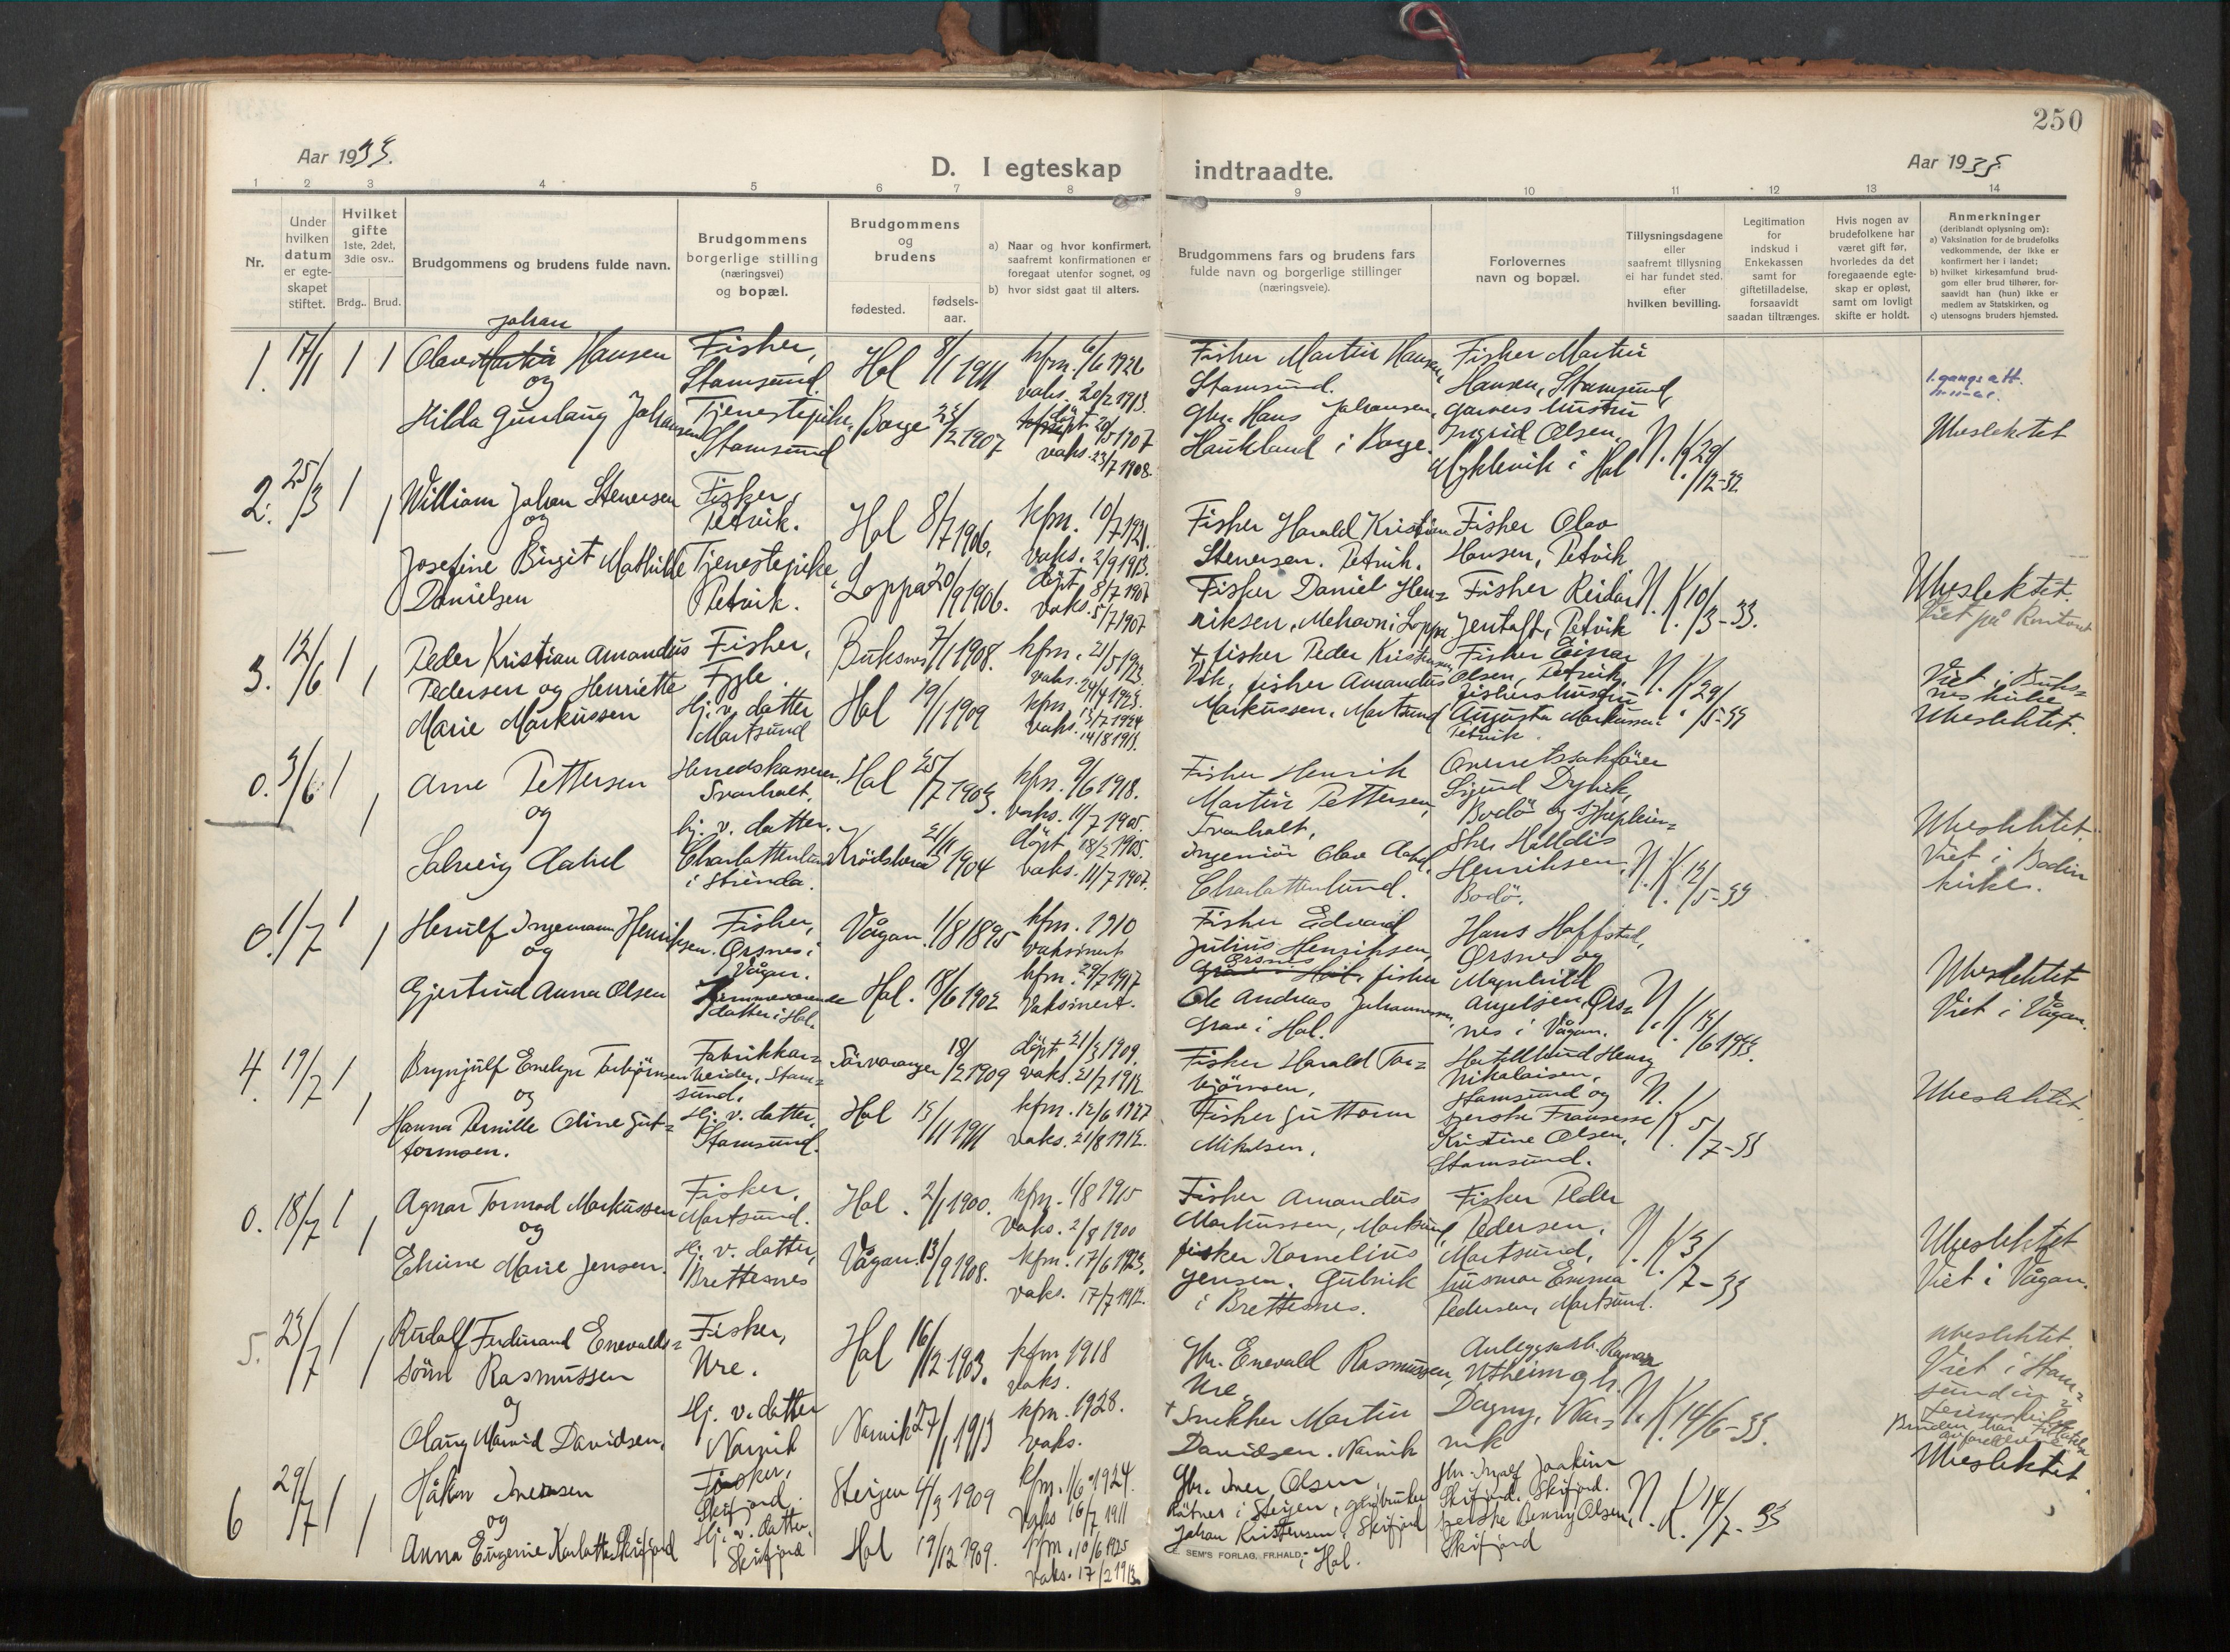 250
Aar 1933.
D. I egteskap indtraadte.
Aar 1933
1 2 3 4 5 6 7 8 9 10 11 12 13 14
Nr.
Under hvilken datum er egteskapet stiftet.
Hvilket gifte 1ste, 2det, 3die osv..
Brdg.. Brud.
Brudgommens og brudens fulde navn.
Brudgommens borgerlige stilling (næringsvei) og bopæl.
Brudgommens og brudens
fødested.
fødsels-aar.
a) Naar og hvor konfirmert, saafremt konfirmationen er foregaat utenfor sognet, og
b) hvor sidst gaat til alters.
Brudgommens fars og brudens fars fulde navn og borgerlige stillinger (næringsveie).
Forlovernes navn og bopæl.
Tillysningsdagene eller saafremt tillysning ei har fundet sted, efter hvilken bevilling.
Legitimation for indskud i Enkekassen samt for giftetilladelse, forsaavidt saadan tiltrænges.
Hvis nogen av brudefolkene har været gift før, hvorledes da det foregaaende egteskap er opløst, samt om lovligt skifte er holdt.
Anmerkninger (deriblandt oplysning om):
a) Vaksination for de brudefolks vedkommende, der ikke er konfirmert her i landet;
b) hvilket kirkesamfund brudgom eller brud tilhører, forsaavidt han (hun) ikke er medlem av Statskirken, og
c) utensogns bruders hjemsted.
1. 17/1 1 1
Johan
Olav Martin Hansen
og
Hilda Gunlaug Johansen
Fisker, Stamsund.
Tjenestepike, Stamsund
Hol 8/1 1911
Borge 1907
kfm. 6/6 1926
vaks. 20/2 1913.
vaks. 23/7 1908.
Fisker Martin Hansen, Stamsund.
Gbr. Hans Johansen, Haukland i Borge.
Fisker Martin Hansen, Stamsund,
Ingrid Olsen,
i Hol
N. K. 29/12-32
Ubeslektet
2. 25/3 1 1
William Johan Stenersen
og
Josefine Birgit Mathilde Danielsen
Fisker, Petvik.
Tjenestepike Petvik.
Hol 8/7 1906.
Loppa 20/9 1906.
kfm. 10/7 1921.
vaks. 2/9 1913.
døpt 8/7 1907
vaks. 5/7 1907
Fisker Harald Kristian Stenersen. Petvik.
Fisker Daniel Henriksen, Mehavn i Loppa
Fisker Olav Hansen, Petvik
Fisker Reidar Jentoft, Petvik
N. K. 10/3-33.
Ubeslektet.
Viet på kontoret
3. 12/6 1 1
Peder Kristian Amandus Pedersen og Henriette Marie Markussen
Fisker, Fygle.
Hj. v. datter Mortsund
Buksnes 7/1 1908.
Hol 19/1 1909
kfm. 21/5 1923.
kfm. 13/7 1924
vaks. 14/8 1913.
+ fisker Peder Kristiansen
fisker Amandus Markussen, Mortsund
Fisker Einar Olsen, Petvik,
fiskershustru Augusta Markussen Petvik.
N. K. 29/5-33
Viet i Buksnes kirke
Ubeslektet.
0. 3/6 1 1
Arne Pettersen
og
Solveig Aabel
Herredskasserer, Svarholt.
Hj. v. datter, Charlottenlund i Strinda.
Hol 25/7 1903.
Krødsherad 1904
kfm. 9/6 1918.
vaks. 11/7 1905.
døpt 18/2 1905.
vaks. 11/7 1907.
Fisker Henrik Martin Pettersen, Svarholt,
Ingeniør Olav Aabel, Charlottenlund.
Overrettssakfører Sigurd Dybvik, Bodø og
Halldis Henriksen, Bodø.
N. K. 12/5-33
Ubeslektet.
Viet i Bodin kirke.
0. 1/7 1 1
Herulf Ingemann Henriksen
og
Gjertrud Anna Olsen
Fisker, Ørsnes i Vågan.
Hjemmeværende datter i Hol.
Vågan. 1/8 1895
Hol. 18/6 1902
kfm. 1910
vaksinert
kfm. 29/7 1917
Vaksinert.
Fisker Edvard Julius Henriksen, Ørsnes
fisker Ole Andreas Johannessen, Grav i Hol.
Hans Hoffstad, Ørsnes og
Magnhild Angelsen, Ørsnes i Vågan.
N. K. 13/6 1933.
Ubeslektet
Viet i Vågan.
4. 19/7 1 1
Brynjulf Emelyn Torbjørnsen
og
Hanna Pernille Oline Guttormsen.
Fabrikkarbeider, Stamsund.
Hj. v. datter, Stamsund.
Sørvaranger 18/2 1909
Hol 15/11 1911
døpt 21/3 1909.
vaks. 21/7 1912
kfm. 12/6 1927
vaks. 21/8 1912.
Fisker Harald Torbjørnsen,
Fisker Guttorm Mikalsen.
Henry Nikolaisen, Stamsund og
Kristine Olsen, Stamsund.
N. K. 5/7-33
Ubeslektet
0. 18/7 1 1
Agnar Tormod Markussen
og
Marie Jensen.
Fisker, Mortsund.
Hj. v. datter, Brettesnes
Hol. 2/1 1900.
Vågan 13/9 1908.
kfm. 1/8 1915
vaks. 2/8 1900
kfm. 17/6 1923.
vaks. 17/7 1912.
Fisker Amandus Markussen, Mortsund,
fisker Kornelius Jensen. Gulvik i Brettesnes.
Fisker Peder Pedersen, Mortsund.
husmor Emma Pedersen, Mortsund.
N. K. 3/7-33
Ubeslektet
Viet i Vågan.
5. 23/7 1 1
Rudolf Ferdinand Enevaldsønn Rasmussen
og
Olaug Marvid Davidsen,
Fisker, Ure.
Hj. v. datter Narvik
Hol 16/12 1903.
Narvik 27/1 1913
kfm 1918
vaks.
kfm. 1928.
vaks.
Gbr. Enevald Rasmussen, Ure.
+ Snekker Martin Davidsen. Narvik
Anleggsarb. Ragnar Utheim og h.
Dagny, Narvik
N. K. 14/6-33.
Ubeslektet
Viet i Stamsund
6 29/7 1 1
Håkon Iversen
og
Anna Eugenie Karlotta Skifjord
Fisker, Skifjord.
Hj. v. datter, Skifjord
Steigen 4/3 1909
Hol 19/12 1909.
kfm. 1/6 1924.
vaks 16/7 1911
kfm. 10/6 1925
vaks. 17/2 1913.
Gbr. Iver Olsen i Steigen, gårdbruker Johan Kristensen, Skifjord i Hol.
Gbr. Ingolf Joakim Skifjord. Skifjord.
Benny Olsen, Skifjord
N. K. 14/7-33
Ubeslektet
SEM'S FORLAG, FR.HALD.